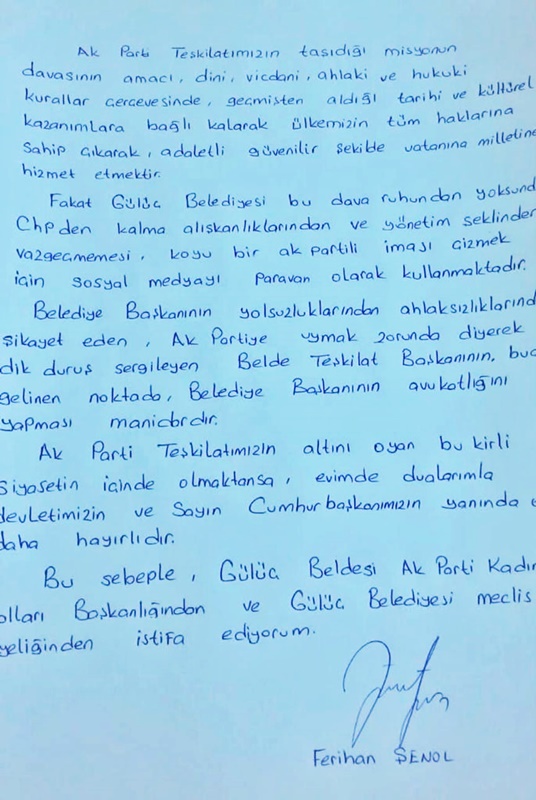 Ak Parti Teşkilatımızın taşıdığı misyonun
davasının amacı, dini, vicdani, ahlaki ve hukuki
kurallar çerçevesinde, geçmişten aldığı tarihi ve kültürel
kazanımlara bağlı kalarak ülkemizin tüm haklarına
sahip çıkarak, adaletli güvenilir şekilde vatanına milletine
hizmet etmektir.
Fakat Gülüç Belediyesi bu dava ruhundan yoksund
Chpden kalma alışkanlıklarından ve yönetim şeklinden
vazgeçmemesi, koyu bir ak partili imajı çizmek
için sosyal medyayı paravan olarak kullanmaktadır.
Belediye Başkanının yolsuzluklarından ahlaksızlıklarınd
şikayet eden, Ak Partiye uymak zorunda diyerek
dik duruş sergileyen Belde Teşkilat Başkanının, bug
gelinen noktada, Belediye Başkanının avukatlığını
yapması manidardır.
Ak Parti Teşkilatımızın altını oyan bu kirli
siyasetin içinde olmaktansa, evimde dualarımla
devletimizin ve Sayın Cumhurbaşkanımızın yanında
daha hayırlıdır.
Bu sebeple, Gülüç Beldesi Ak Parti Kadın
olları Başkanlığından ve Gülüç Belediyesi meclis
yeliğinden istifa ediyorum.
Ferihan ŞENOL